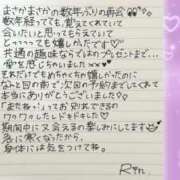 まさかまさかの数年ぶりの再会
数年経っても、覚えてくれていて
会いたいと思ってもらえていて
とっっっっても嬉しかったです
共通の趣味ならではのプレゼントまで…
愛を感じちゃいました
もあただけでもめちゃくちゃ嬉しかったのに
なんと回の前で次回の予約までしてくれて
本当にありがとうございました
「またね♪」ってお別れできるの
ワクワクしたしドキドキした♡
期間中に又会えるの楽しみにしてます
寒くなってきたから、
身体には気をつけてね。
Rin.